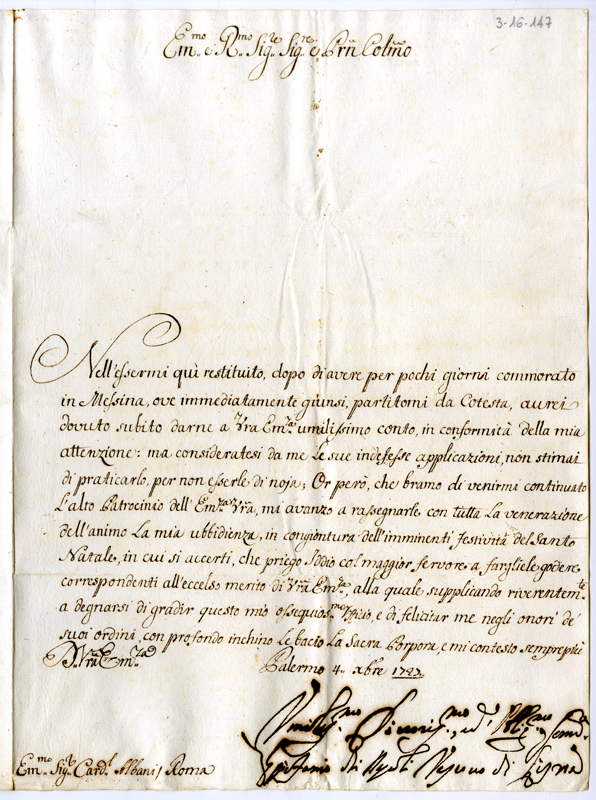 3-16-147
Em.mo e R.mo Sig.r Sig.re e Prn Colmo
Nell'essermi quì restituito, dopo di avere per pochi giorni commorato
in Messina, ove immediatamente giunsi, partitomi da Cotesta, aurei
dovuto subito darne a Vra Em.za umilissimo conto, in conformità della mia
attenzione: ma consideratesi da me le sue indefesse applicazioni, non stimai
di praticarlo, per non esserle di noja; Or però, che bramo di venirmi continuato
L'alto Patrocinio dell'Em.za Vra, mi avanzo a rassegnarle con tutta La venerazione
dell'animo La mia ubbidienza, in congiontura dell'imminenti festività del Santo
Natale, in cui si accerti, che priego Iddio col maggior fervore a fargliele godere
corrispondenti all'eccelso merito di Vra Em.za, alla quale supplicando riverentem.te
a degnarsi di gradir questo mio ossequios.mo Officio, e di felicitar me negli onori de'
suoi ordini, con profondo inchino Le bacio La Sacra Porpora, e mi contesto semprepiù
D. Vra Em.za
Palermo 4. xbre 1727.
Umiliss.mo Divotis.mo ed Obblig.mo Serv.
di Napoli Vescovo di
Em.mo Sig.r Card.l Albani / Roma